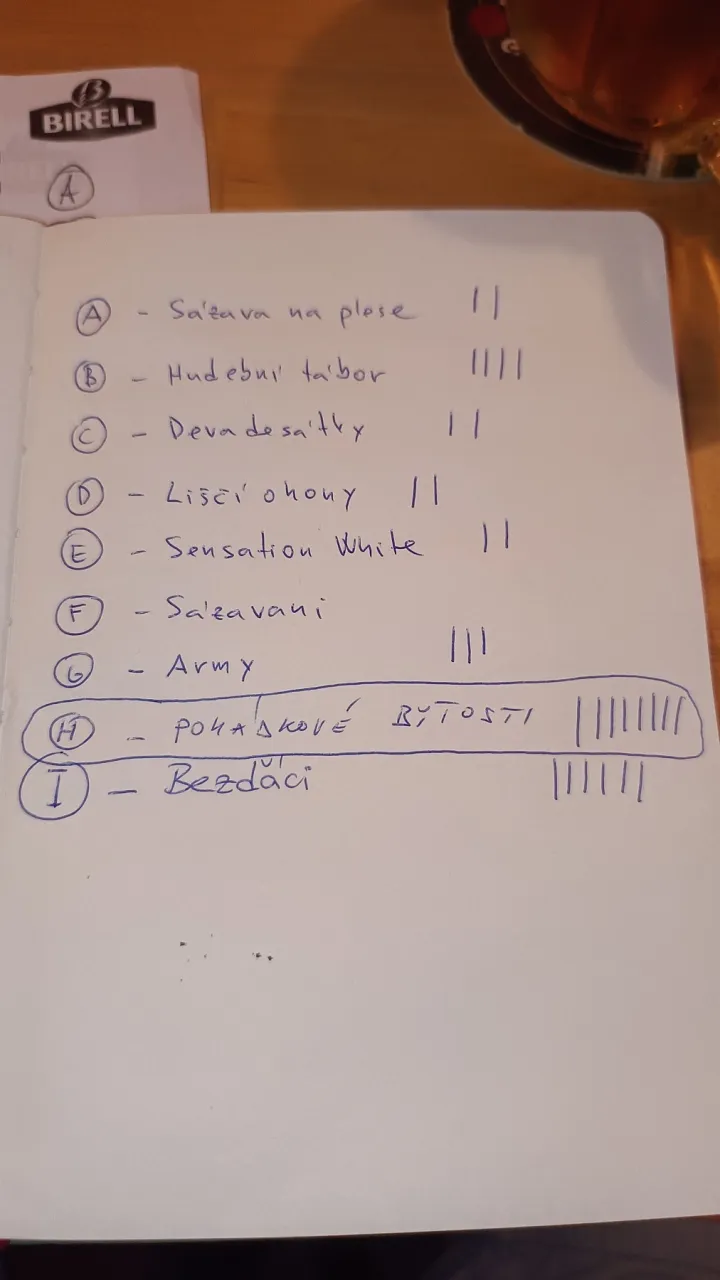 B
BIRELL
A
A - Sázava na plese ||
B - Hudební tábor ||||
C - Devadesátky ||
D - Liščí ohony ||
E - Sensation White ||
F - Sázavani
G - Army |||
H - POHÁDKOVÉ BYTOSTI |||||||||
I - Bezďáci ||||||